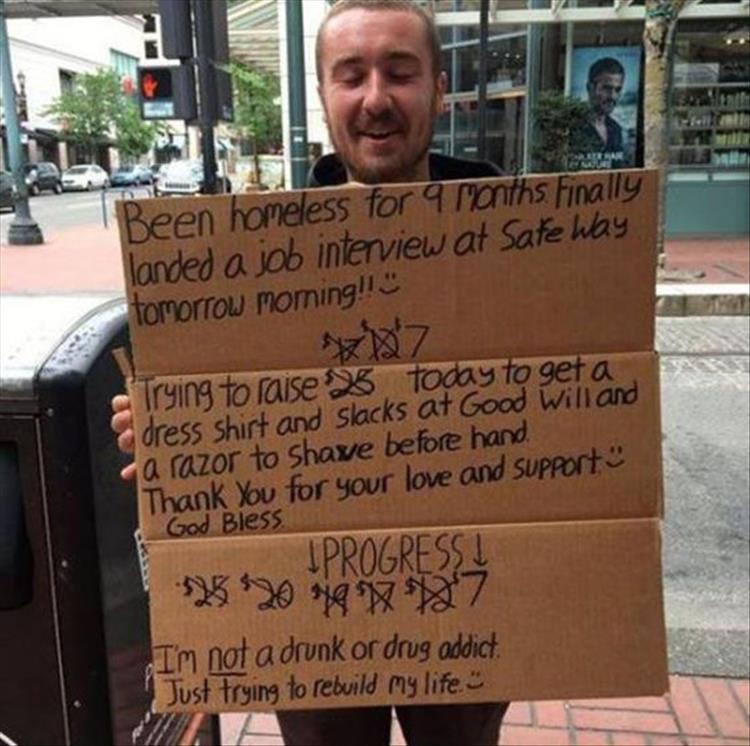 Been homeless for 9 months. Finally
landed a job interview at Safe Way
tomorrow morning!!
$17 $12 $7
Trying to raise $25 today to get a
dress shirt and slacks at Good Will and
a razor to shave before hand.
Thank You for your love and support
God Bless.
↓PROGRESS↓
$25 $20 $19 $17 $12 $7
I'm not a drunk or drug addict.
Just trying to rebuild my life.